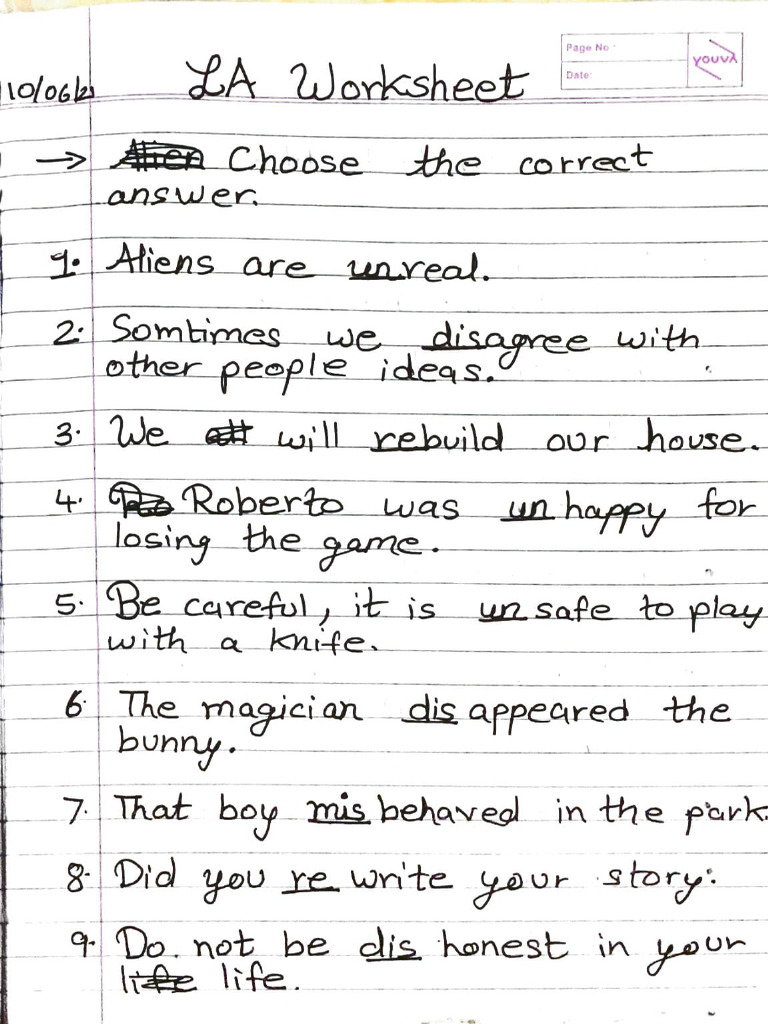 Page No :
Date:
YOUVA
10/06/21
LA Worksheet
→ Choose the correct
answer.
1. Aliens are unreal.
2. Somtimes we disagree with
other people ideas.
3. We will rebuild our house.
4. Roberto was unhappy for
losing the game.
5. Be careful, it is unsafe to play
with a knife.
6. The magician disappeared the
bunny.
7. That boy misbehaved in the park.
8. Did you re write your story.
9. Do not be dis honest in your
life.